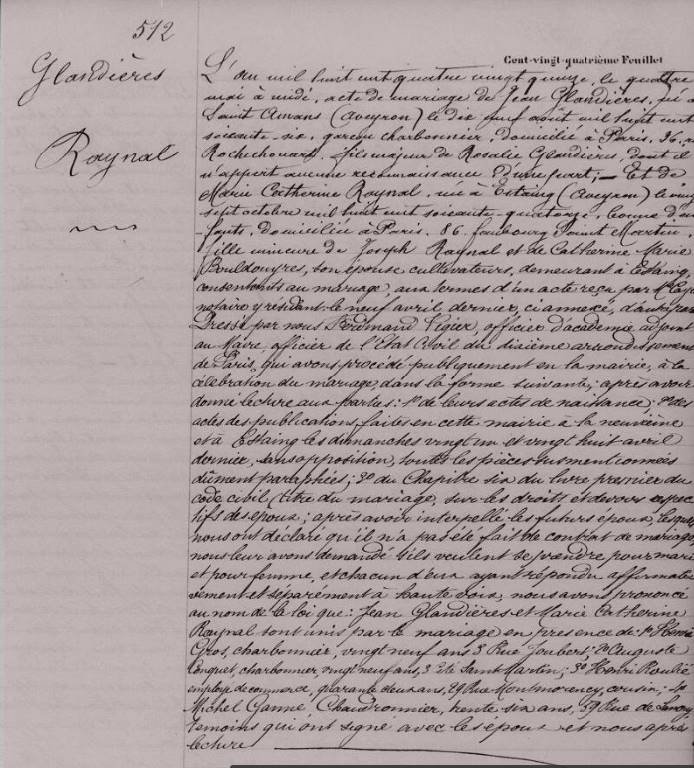 512
Cent-vingt-quatrième Feuillet
Glandières
Raynal
L'an mil huit cent quatre vingt quinze, le quatre
mai à midi, acte de mariage de Jean Glandières, né à
Saint Amans (Aveyron) le dix neuf août mil huit cent
soixante-six, garçon charbonnier, domicilié à Paris, 36, r
Rochechouart, fils majeur de Rosalie Glandières, dont il
n'appert aucune reconnaissance d'une part; — Et de
Marie Catherine Raynal, née à Estaing (Aveyron) le vingt
sept octobre mil huit cent soixante-quatorze, bonne d'en
-fants, domiciliée à Paris, 86, faubourg Saint Martin,
fille mineure de Joseph Raynal et de Catherine Marie
Bouldouyres, son épouse cultivateurs, demeurant à Estaing,
consentants au mariage, aux termes d'un acte reçu par Me
notaire y résidant le neuf avril dernier, ci annexé, d'autre part
Dressé par nous Ferdinand Vigier, officier d'académie adjoint
au Maire, officier de l'Etat Civil du dixième arrondissement
de Paris, qui avons procédé publiquement en la mairie, à la
célébration du mariage, dans la forme suivante; après avoir
donné lecture aux parties: 1º de leurs actes de naissance; 2º des
actes des publications faites en cette mairie à la neuvième
et à Estaing les dimanches vingt un et vingt huit avril
dernier, sans opposition, toutes les pièces susmentionnées
dûment paraphées; 3º du Chapitre six du livre premier du
code civil (titre du mariage) sur les droits et devoirs respec
tifs des époux; après avoir interpellé les futurs époux, lesquels
nous ont déclaré qu'il n'a pas été fait de contrat de mariage,
nous leur avons demandé s'ils veulent se prendre pour mari
et pour femme, et chacun d'eux ayant répondu affirmati
vement et séparément à haute voix, nous avons prononcé
au nom de la loi que: Jean Glandières et Marie Catherine
Raynal sont unis par le mariage en présence de: 1º Henri
Gros, charbonnier, vingt neuf ans, 3 Rue Joubert; 2º Auguste
Conquet, charbonnier, vingt neuf ans, 3 Cité Saint Martin; 3º Henri
employé de commerce, quarante deux ans, 29 Rue Montmorency, cousin; 4º
Michel Ganne Chaudronnier, trente six ans, 39 Rue de
témoins qui ont signé avec les époux et nous après
lecture